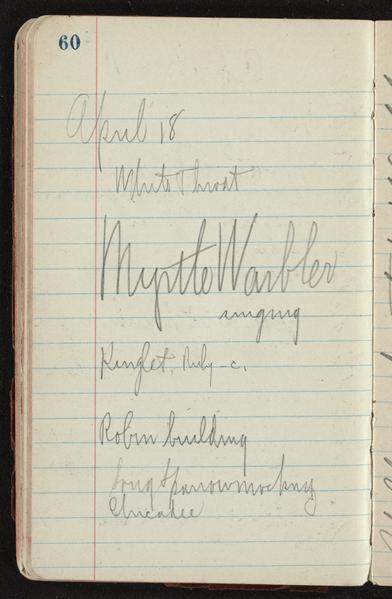 60
April 18
White Throat
Myrtle Warbler
singing
Kinglet, Ruby-c.
Robin building
Song Sparrow mocking
Chicadee